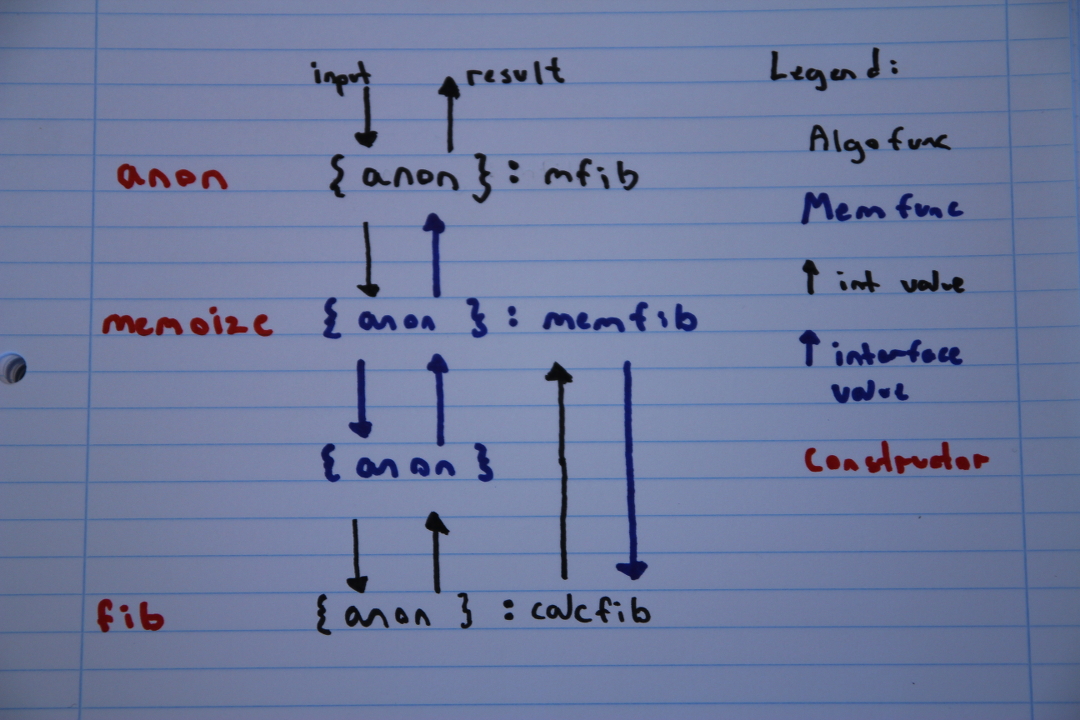 input result
anon { anon } : mfib
memoize { anon } : memfib
{ anon }
fib { anon } : calcfib
Legend:
Algofunc
Memfunc
↑ int value
↑ interface
value
Constructor